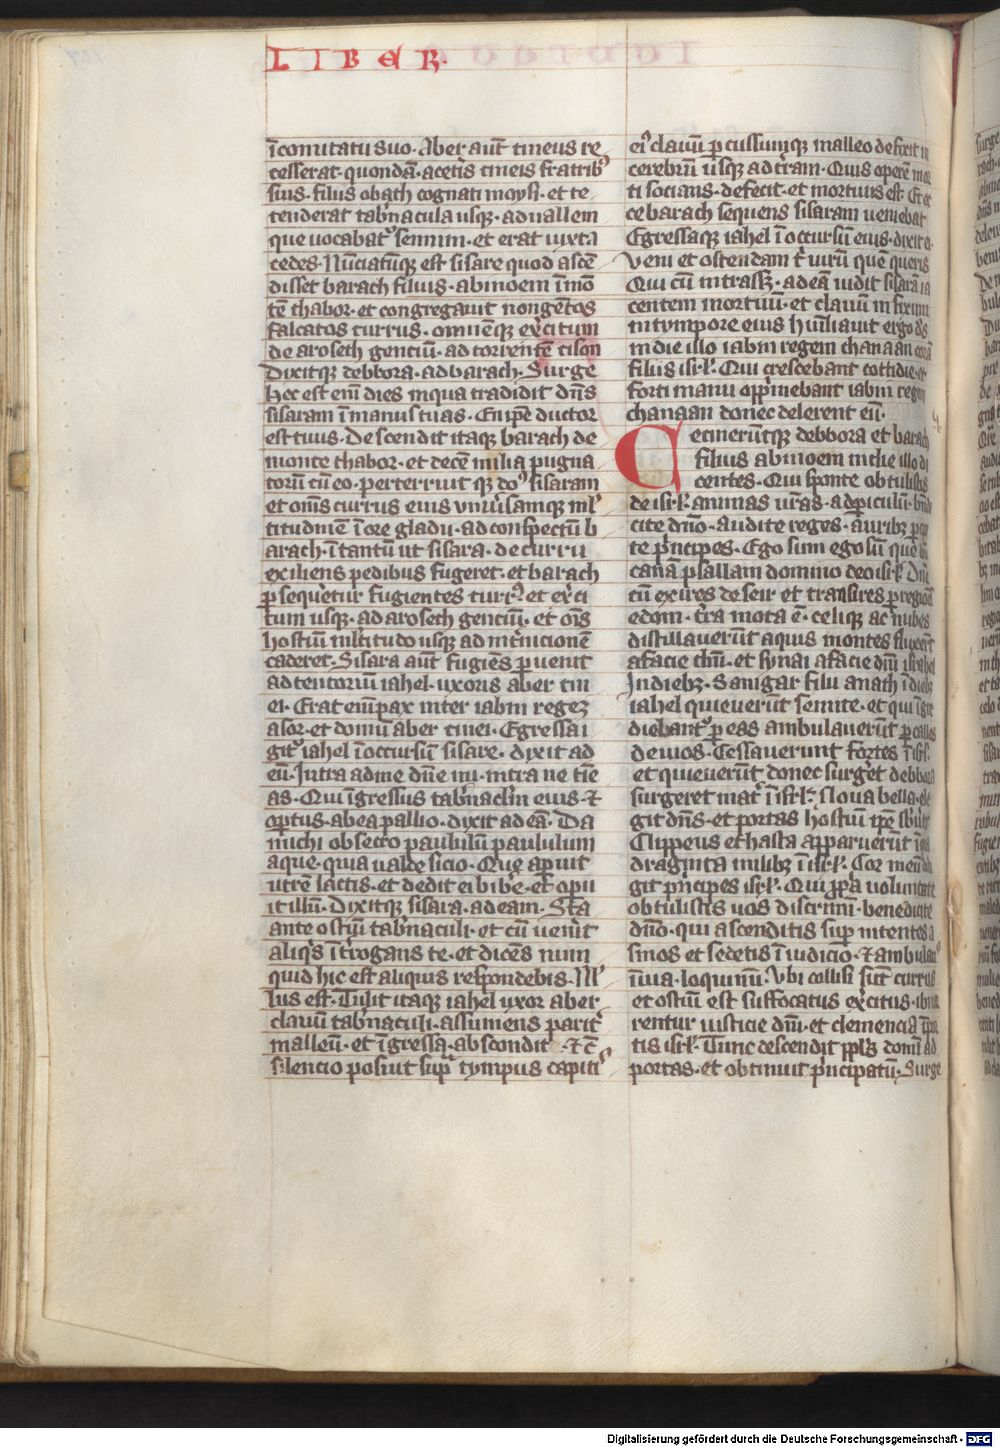 LIBER.
ī comitatu suo. Aber aut̄ cineus re
cesserat. quondā. aceteris cineis fratribꝰ
suis. filius obath cognati moysi. et te
tenderat tab̄nacula usqꝫ. ad uallem
que uocabat᷑ sennim. et erat iuxta
cedes. Nūciatūqꝫ est sisare quod ascē
disset barach filius. abinoem ī mō
tē thabor. et congregauit nongētos
falcatos currus. omnēqꝫ exc̄itum
de aroseth genciū. ad torrentē cison
Dixitqꝫ debbora. ad barach. Surge
hec est eni dies in qua tradidit dn̄s
sisaram ī manus tuas. En ip̄e ductor
est tuus. Descendit itaqꝫ barach de
monte thabor. et decē milia pugna
torū cū eo. perterruit qꝫ do᷒ sisaram
et om̄s currus eius uniūsamqꝫ ml̄
titudinē ī ore gladii. ad conspectū b
arach. ī tantū ut sisara. de curru
exiliens pedibus fugeret. et barach
ꝑseqūetur fugientes curr᷒ et exc̄i
tum usqꝫ. ad aroseth genciū. et om̄s
hostiū ml̄titudo usqꝫ ad int̄nicionē
caderet. Sisara aut̄ fugiēs ꝑuenit
ad tentoriū iahel. uxoris aber cin
ei. Erat eni pax inter iabin regez
asor. et domū aber cinei. Egressa i
git᷑ iahel ī occursū sisare. dixit ad
eū. Intra ad me dn̄e mi. intra ne tīe
as. Qui īgressus tab̄naclm̄ eius. ⁊
optus. ab ea pallio. dixit ad eā. Da
michi obsecro paululū paululum
aque. quia ualde sicio. Que aꝑuit
utrē lactis. et dedit ei bibē. et opu
it illū. Dixitqꝫ sisara. ad eam. Sta
ante ostiū tab̄naculi. et cū uen̄it
aliq̄s īt̄rogans te. et dicēs num
quid hic est aliquis respondebis. Nl̄
lus est. Tulit itaqꝫ iahel uxor aber
clauū tab̄naculi. assumens parit᷑
malleū. et īgressa. abscondit᷑. ⁊ c̄
silencio posuit sup̄ tympus capiti᷒
ei᷒ clauū ꝑcussumqꝫ malleo defixit in
cerebrū usqꝫ ad t̄ram. Quis operē mor
ti socians. defecit. et mortuus est. Et ec
ce barach sequens sisaram ueniebat
Egressaqꝫ iahel ī occursū eius. dixit ei
Veni et ostendam t̄ uirū quē queris
Qui cū intrass̄. ad eā uidit sisarā ia
centem mortuū. et clauū infixum
in tympore eius hūiliauit ergo ds̄
in die illo iabin regem chanaan corā
filiis isrl̄. Qui crescebant cottidie. et
forti manu opp̄mebant iabin regem
chanaan donec delerent eū.
Cecinerūtqꝫ debbora et barach
filius abinoem in die illo di
centes. Qui sponte obtulistis
de isrl̄. animas ur̄as. ad ꝑiculū. bn̄di
cite dn̄o. Audite reges. auribꝫ ꝑcipi
te p̄ncipes. Ego sum ego sū que
canā psallam domino deo isrl̄. Dn̄e
cū exires de seir et transires ꝑ regiones
edom. t̄ra mota ē. celiqꝫ ac nubes
distillauerūt aquis montes fluxer̄t
a facie dn̄i. et synai a facie dn̄i israhel
In diebꝫ. Samgar filii anath ī diebꝫ
iahel quieuerūt semite. et qui īgre
diebant᷑ ꝑ eas ambulauerūt ꝑ calles
deuios. Cessauerunt fortes ī isrl̄.
et quieuerūt donec surḡet debbora
surgeret mat̄ ī isrl̄. Noua bella. ele
git dn̄s. et portas hostiū ip̄e sbu̅tit
Clippeus et hasta apparuerūt ī qua
draginta milibꝫ ī isrl̄. Cor meū dili
git p̄ncipes isrl̄. Qui ꝓp̄a uoluntate
obtulistis uos discrimī. benedicite
dn̄o. qui ascenditis sup̄ nitentes a
sinos et sedetis ī iudicio. ⁊ ambulat᷒
ī uia. loquinī. Vbi collisi sūt currus
et ostiū est suffocatus exc̄itus. ibi nar
rentur iusticie dn̄i. et clemencia ī for
tis isrl̄. Tunc descendit ppl̄s domī ad
portas. et obtinuit p̄ncipatū. Surge
Digitalisierung gefördert durch die Deutsche Forschungsgemeinschaft - DFG